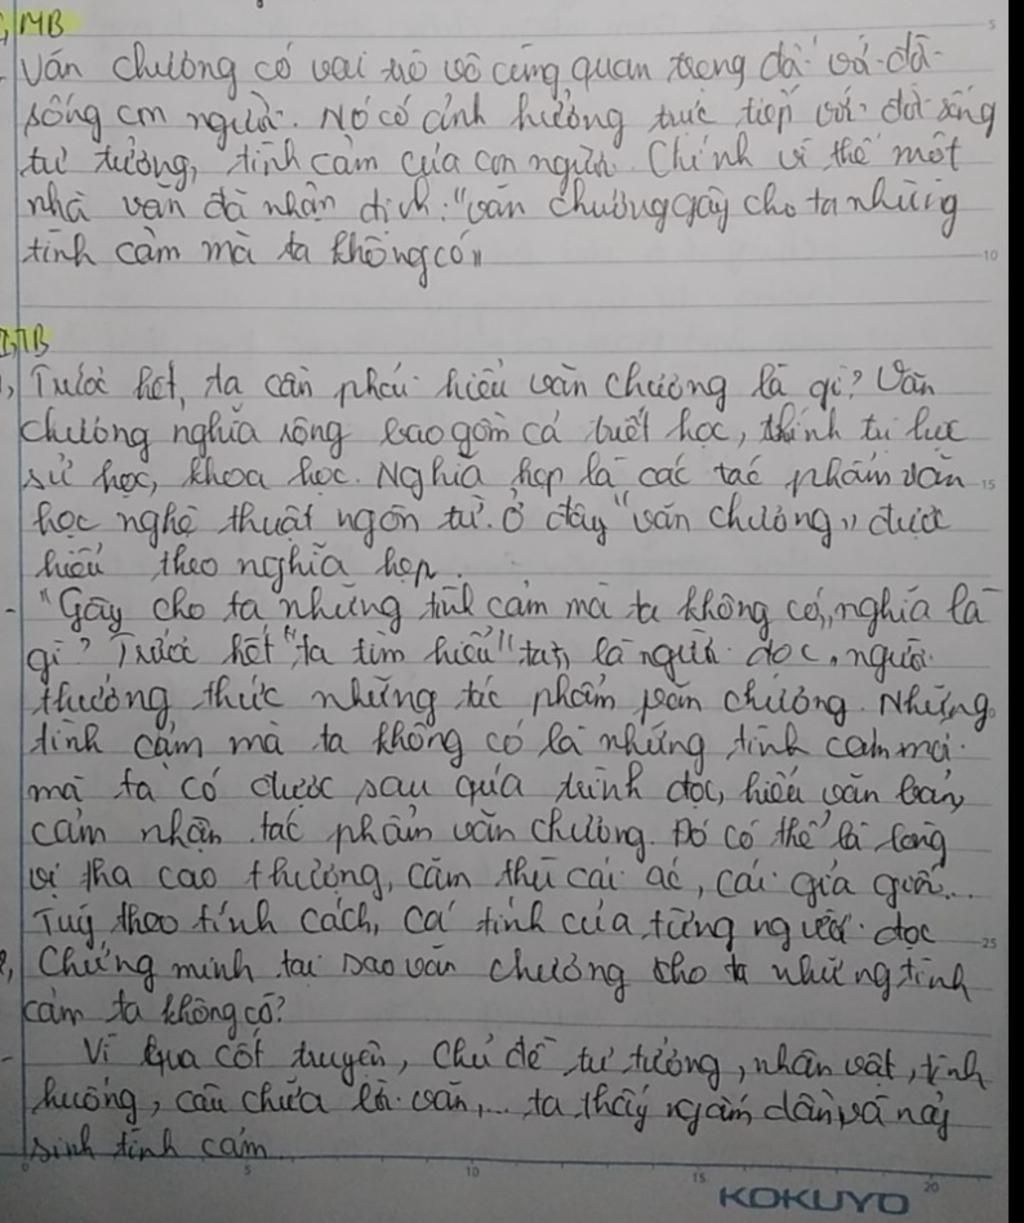 I, MB
- Văn chương có vai trò vô cùng quan trọng đối với đời
sống con người. Nó có ảnh hưởng trực tiếp với đời sống
tư tưởng, tình cảm của con người. Chính vì thế một
nhà văn đã nhận định: "văn chương gây cho ta những
tình cảm mà ta không có"
II, TB
1, Trước hết, ta cần phải hiểu văn chương là gì? Văn
chương nghĩa rộng bao gồm cả triết học, chính trị học
sử học, khoa học. Nghĩa hẹp là các tác phẩm văn
học nghệ thuật ngôn từ. Ở đây "văn chương" được
hiểu theo nghĩa hẹp.
- "Gây cho ta những tình cảm mà ta không có" nghĩa là
gì? Trước hết "ta tìm hiểu" "ta" là người đọc, người
thưởng thức những tác phẩm văn chương. Những
tình cảm mà ta không có là những tình cảm mới
mà ta có được sau quá trình đọc, hiểu văn bản,
cảm nhận tác phẩm văn chương. Đó có thể là lòng
vị tha cao thượng, căm thù cái ác, cái giả dối...
Tuỳ theo tính cách, cá tính của từng người đọc
2, Chứng minh tại sao văn chương cho ta những tình
cảm ta không có?
- Vì qua cốt truyện, chủ đề tư tưởng, nhân vật, tình
huống, câu chữ lời văn,... ta thấy ngấm dần và nảy
sinh tình cảm
5
10
15
25
0 5 10 15 20
KOKUYO